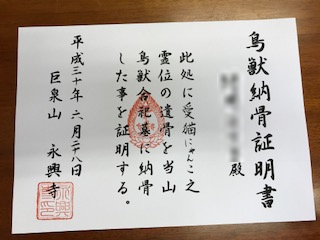 鳥獣納骨証明書
殿
此処に愛猫にゃんこ之
霊位の遺骨を当山
鳥獣合祀墓に納骨
した事を証明する。
平成三十年六月二八日
巨泉山　永興寺